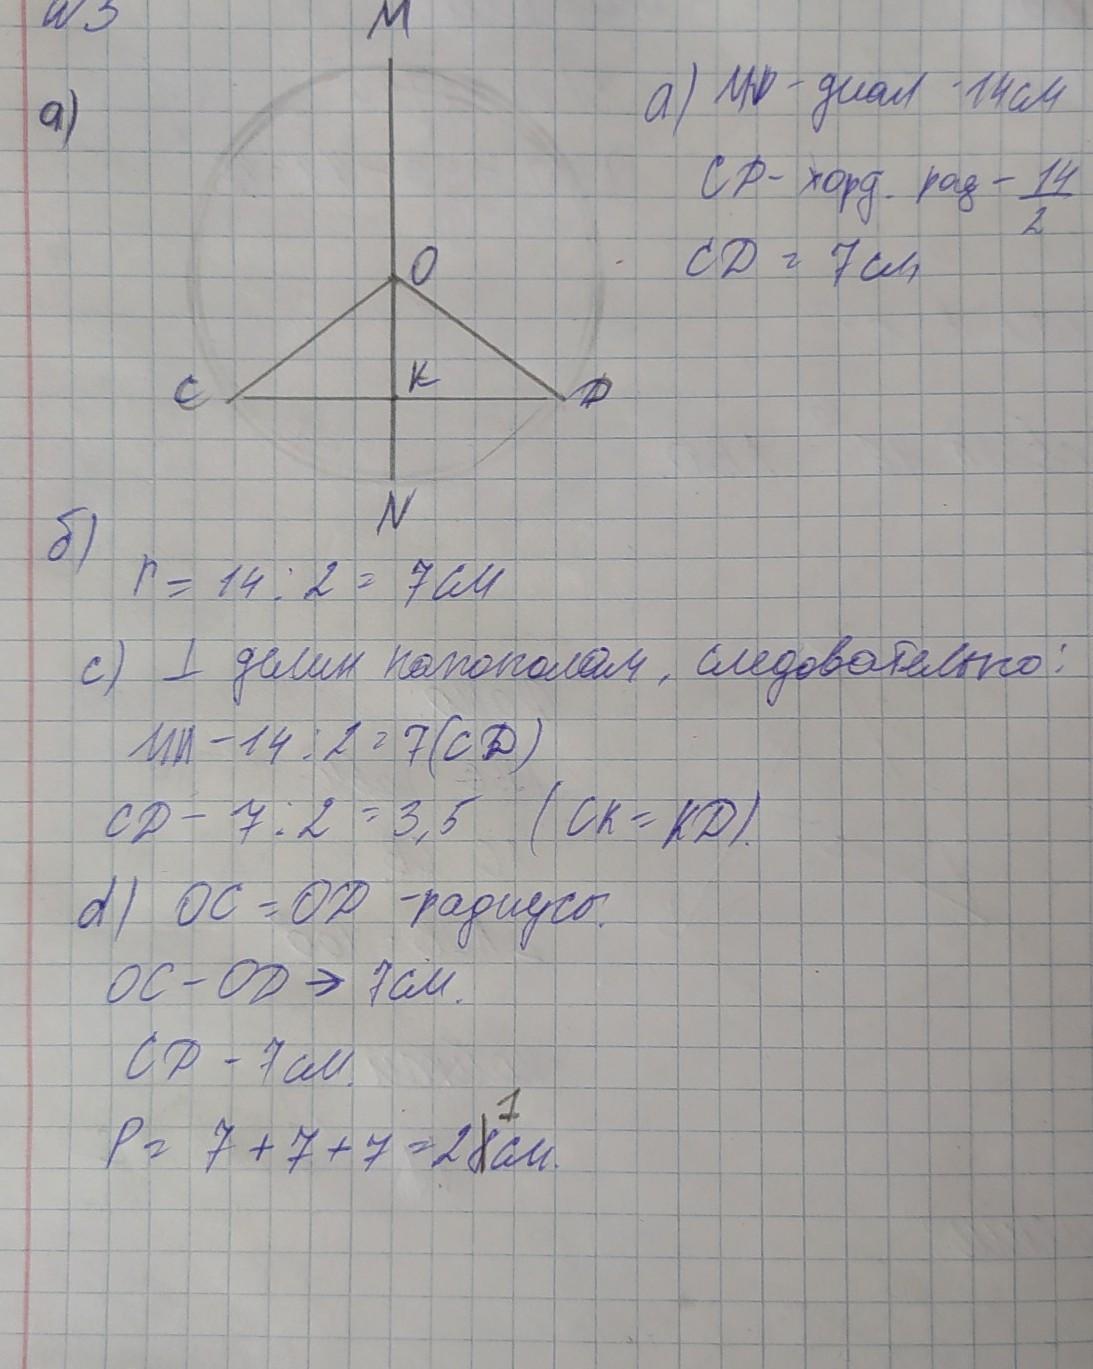 №3
а)
M
O
K
C
D
N
а) MN - диам - 14см
CD - хорд. рад - 14/2
CD = 7см
б)
r = 14 : 2 = 7см
c) ⊥ делит напополам, следовательно:
MN - 14 : 2 = 7 (CD)
CD - 7 : 2 = 3,5 (CK = KD).
d) OC = OD - радиусы.
OC - OD → 7см.
CD - 7см.
P = 7 + 7 + 7 = 21см.